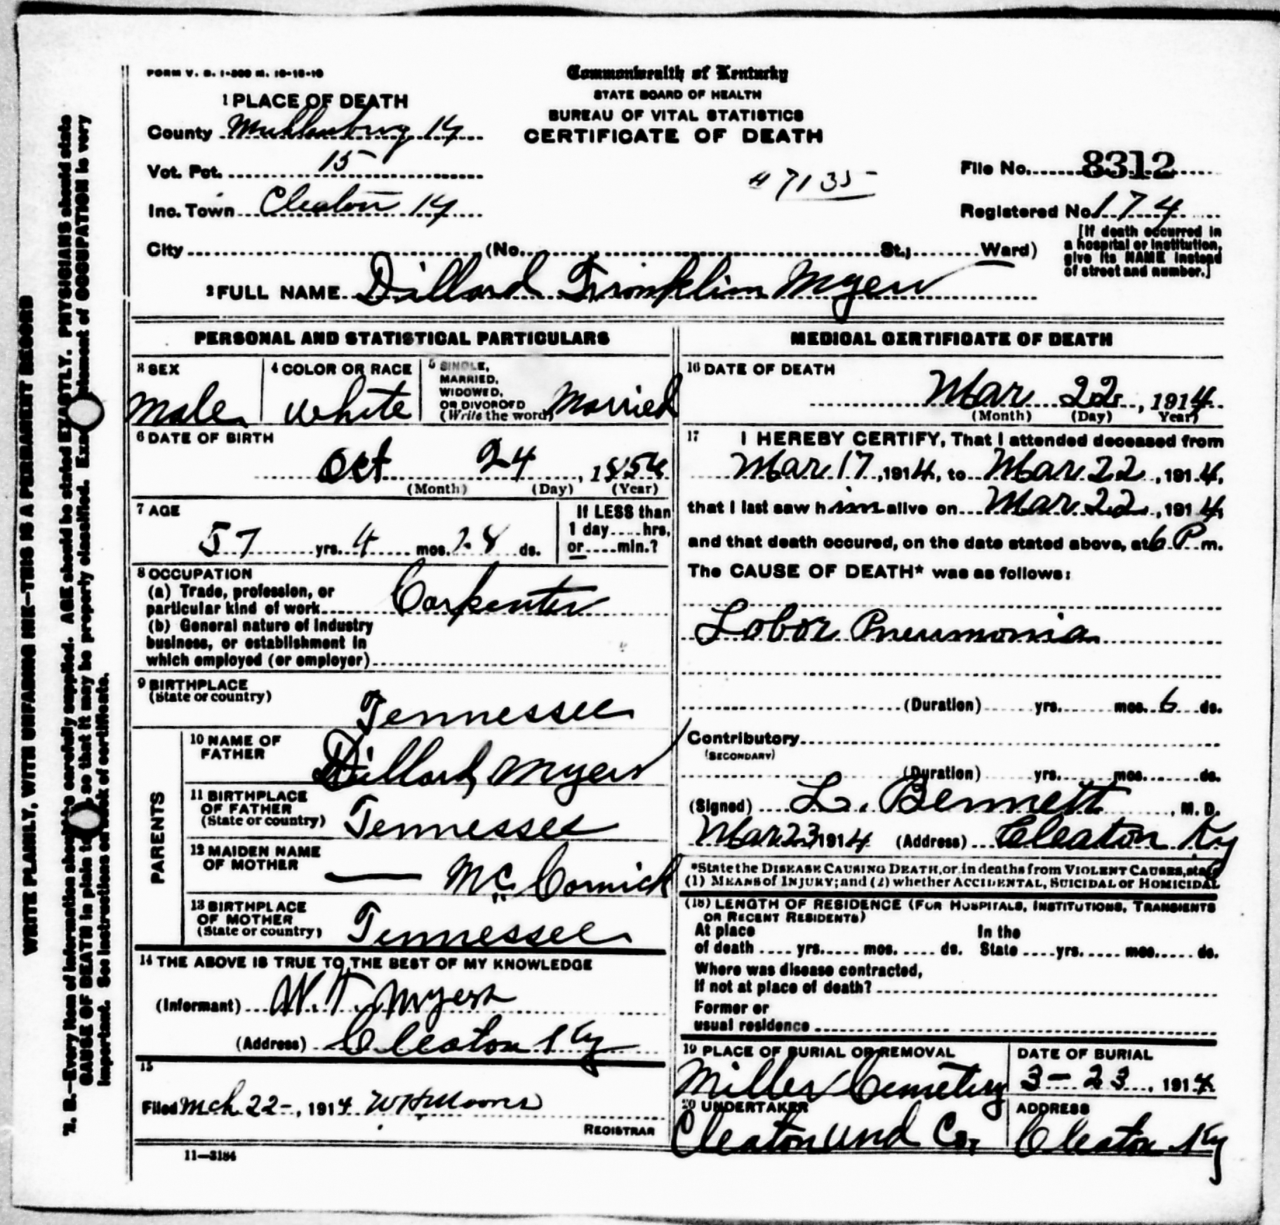 FORM V. S. 1-300 M. 10-10-10
Commonwealth of Kentucky
STATE BOARD OF HEALTH
BUREAU OF VITAL STATISTICS
CERTIFICATE OF DEATH
1 PLACE OF DEATH
County Muhlenburg Ky
Vot. Pct. 15
Inc. Town Cleaton Ky
City (No. St.; Ward)
# 7135
File No. 8312
Registered No. 174
[If death occurred in
a hospital or institution,
give its NAME instead
of street and number.]
2 FULL NAME Dillard Franklin Myers
PERSONAL AND STATISTICAL PARTICULARS
3 SEX
Male
4 COLOR OR RACE
White
5 SINGLE,
MARRIED,
WIDOWED,
OR DIVORCED
(Write the word) Married
6 DATE OF BIRTH
Oct 24, 1856
(Month) (Day) (Year)
7 AGE
57 yrs. 4 mos. 28 ds.
If LESS than
1 day.....hrs.
or.....min.?
8 OCCUPATION
(a) Trade, profession, or
particular kind of work Carpenter
(b) General nature of industry
business, or establishment in
which employed (or employer)
9 BIRTHPLACE
(State or country)
Tennessee
PARENTS
10 NAME OF
FATHER
Dillard Myers
11 BIRTHPLACE
OF FATHER
(State or country) Tennessee
12 MAIDEN NAME
OF MOTHER
— McCormick
13 BIRTHPLACE
OF MOTHER
(State or country) Tennessee
14 THE ABOVE IS TRUE TO THE BEST OF MY KNOWLEDGE
(Informant) W. T. Myers
(Address) Cleaton Ky
15
Filed Mch 22-, 1914 W H Moore
REGISTRAR
11—3184
MEDICAL CERTIFICATE OF DEATH
16 DATE OF DEATH
Mar 22, 1914
(Month) (Day) (Year)
17 I HEREBY CERTIFY, That I attended deceased from
Mar 17, 1914, to Mar 22, 1914,
that I last saw him alive on Mar 22, 1914,
and that death occured, on the date stated above, at 6 P m.
The CAUSE OF DEATH* was as follows:
Lobor Pneumonia
(Duration) yrs. mos. 6 ds.
Contributory
(SECONDARY)
(Duration) yrs. mos. ds.
(Signed) L. Bennett, M. D.
Mar 23 1914 (Address) Cleaton Ky
*State the DISEASE CAUSING DEATH, or, in deaths from VIOLENT CAUSES, state
(1) MEANS of INJURY; and (2) whether ACCIDENTAL, SUICIDAL or HOMICIDAL
(18) LENGTH OF RESIDENCE (FOR HOSPITALS, INSTITUTIONS, TRANSIENTS
OR RECENT RESIDENTS)
At place In the
of death yrs. mos. ds. State yrs. mos. ds.
Where was disease contracted,
If not at place of death?
Former or
usual residence
19 PLACE OF BURIAL OR REMOVAL
Miller Cemetery
DATE OF BURIAL
3-23, 1914
20 UNDERTAKER
Cleaton Und Co.
ADDRESS
Cleaton Ky
WRITE PLAINLY, WITH UNFADING INK—THIS IS A PERMANENT RECORD
N. B.—Every item of information should be carefully supplied. AGE should be stated EXACTLY. PHYSICIANS should state
CAUSE OF DEATH in plain so that it may be properly classified. Exact statement of OCCUPATION is very
important. See instructions on back of certificate.